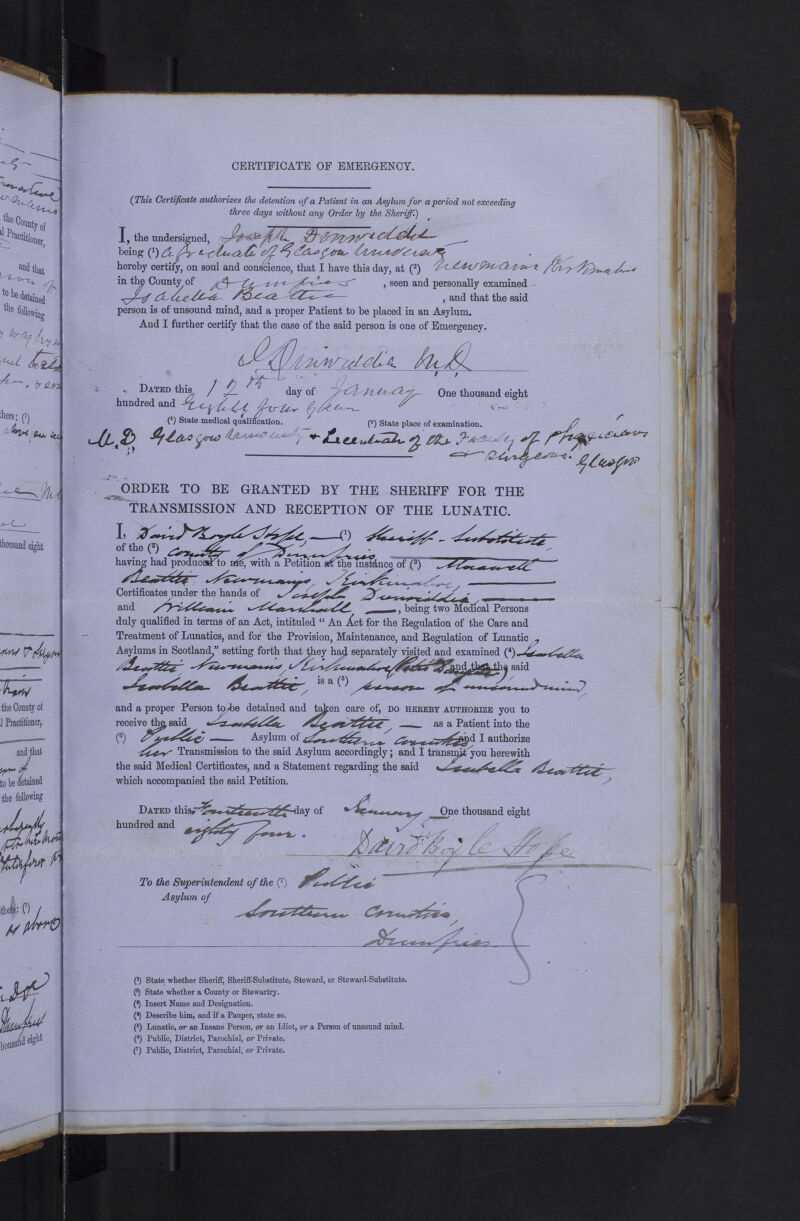 CERTIFICATE OF EMERGENCY.
(This Certificate authorizes the detention of a Patient in an Asylum for a period not exceeding
three days without any Order by the Sheriff.)
I, the undersigned, Joseph Dinwiddie
being (¹) a Graduate of Glasgow University
hereby certify, on soul and conscience, that I have this day, at (²) Newmains Kirkmahoe
in the County of Dumfries , seen and personally examined
Isabella Beattie , and that the said
person is of unsound mind, and a proper Patient to be placed in an Asylum.
And I further certify that the case of the said person is one of Emergency.
J Dinwiddie M.D.
DATED this 12th day of January One thousand eight
hundred and Eighty four
(¹) State medical qualification. (²) State place of examination.
M.D. Glasgow University & Licentiate of the Faculty of Physicians
& Surgeons. Glasgow
ORDER TO BE GRANTED BY THE SHERIFF FOR THE
TRANSMISSION AND RECEPTION OF THE LUNATIC.
I, David Boyle Hope, — (¹) Sheriff-Substitute
of the (²) County of Dumfries
having had produced to me, with a Petition at the instance of (³) Maxwell
Beattie Newmains, Kirkmahoe,
Certificates under the hands of Joseph Dinwiddie,
and William Marshall, —, being two Medical Persons
duly qualified in terms of an Act, intituled “ An Act for the Regulation of the Care and
Treatment of Lunatics, and for the Provision, Maintenance, and Regulation of Lunatic
Asylums in Scotland,” setting forth that they had separately visited and examined (⁴) Isabella
Beattie Newmains, Kirkmahoe and that the said
Isabella Beattie, is a (⁵) person of unsound mind,
and a proper Person to be detained and taken care of, DO HEREBY AUTHORIZE you to
receive the said Isabella Beattie, — as a Patient into the
(⁶) Public — Asylum of Southern Counties and I authorize
her Transmission to the said Asylum accordingly; and I transmit you herewith
the said Medical Certificates, and a Statement regarding the said Isabella Beattie,
which accompanied the said Petition.
DATED this Fourteenth day of January One thousand eight
hundred and eighty four.
David Boyle Hope
To the Superintendent of the (⁷) Public
Asylum of
Southern Counties,
Dumfries.
(¹) State whether Sheriff, Sheriff-Substitute, Steward, or Steward-Substitute.
(²) State whether a County or Stewartry.
(³) Insert Name and Designation.
(⁴) Describe him, and if a Pauper, state so.
(⁵) Lunatic, or an Insane Person, or an Idiot, or a Person of unsound mind.
(⁶) Public, District, Parochial, or Private.
(⁷) Public, District, Parochial, or Private.